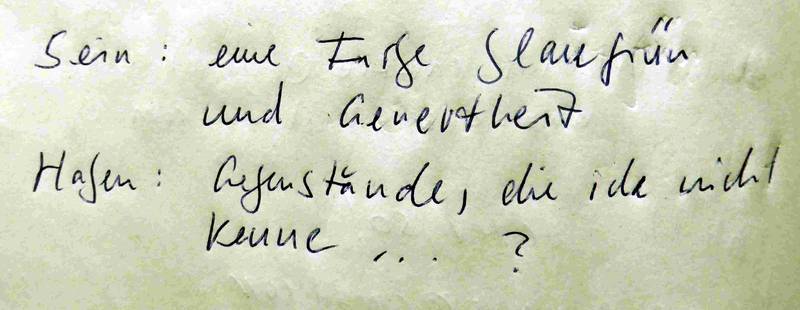 Sein : eine Farbe Blaugrün
und Genervtheit
Haben : Gegenstände, die ich nicht
kenne ... ?